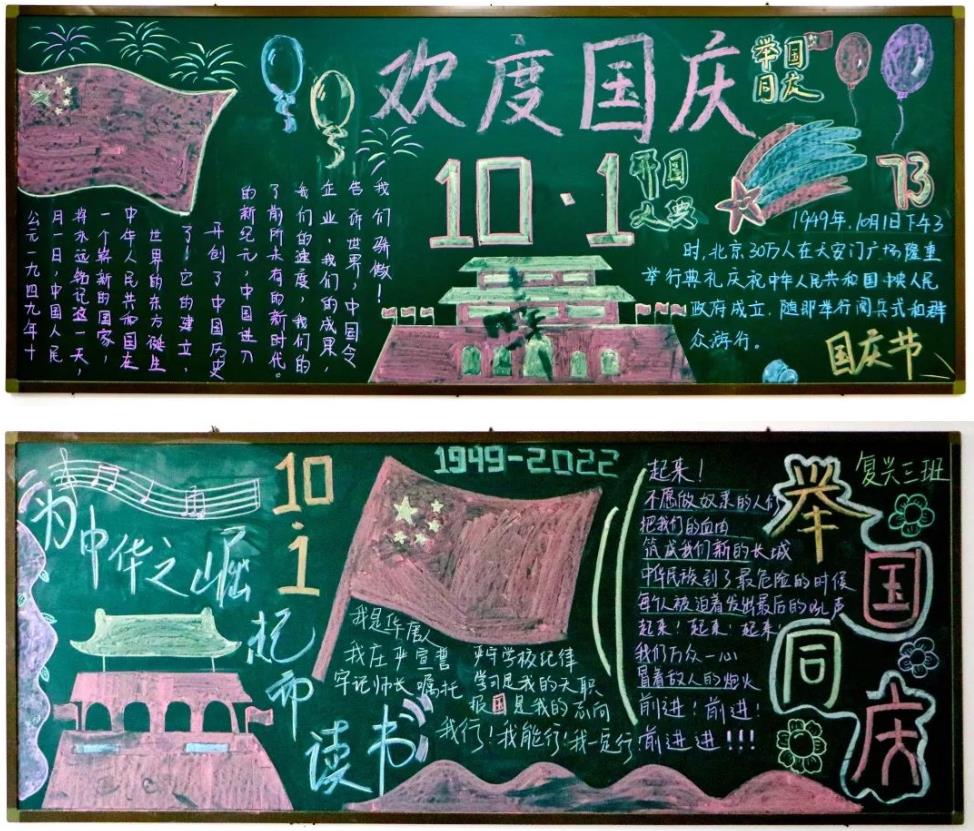 欢度国庆
举国
同庆
10·1
开国
大典
73
公元一九四九年十
月一日,中国人民
将永远铭记这一天,
一个崭新的国家,
中华人民共和国在
世界的东方诞生
了!它的建立,
开创了中国历史
的新纪元,中国进入
了前所未有的新时代。
我们的速度,我们的
企业,我们的成果,
告诉世界,中国令
我们骄傲!
1949年,10月1日下午3
时,北京30万人在天安门广场隆重
举行典礼庆祝中华人民共和国中央人民
政府成立.随即举行阅兵式和群
众游行。
国庆节
为中华之崛
起而
读书
10·1
1949-2022
我是华
我庄严宣誓
严守学校纪律
牢记师长嘱托
学习是我的天职
报国是我的志向
我行!我能行!我一定行!
起来!
不愿做奴隶的人们
把我们的血肉
筑成我们新的长城
中华民族到了最危险的时候
每个人被迫着发出最后的吼声
起来!起来!起来!
我们万众一心
冒着敌人的炮火
前进!前进!
前进进!!!
举国
同庆
复兴三班